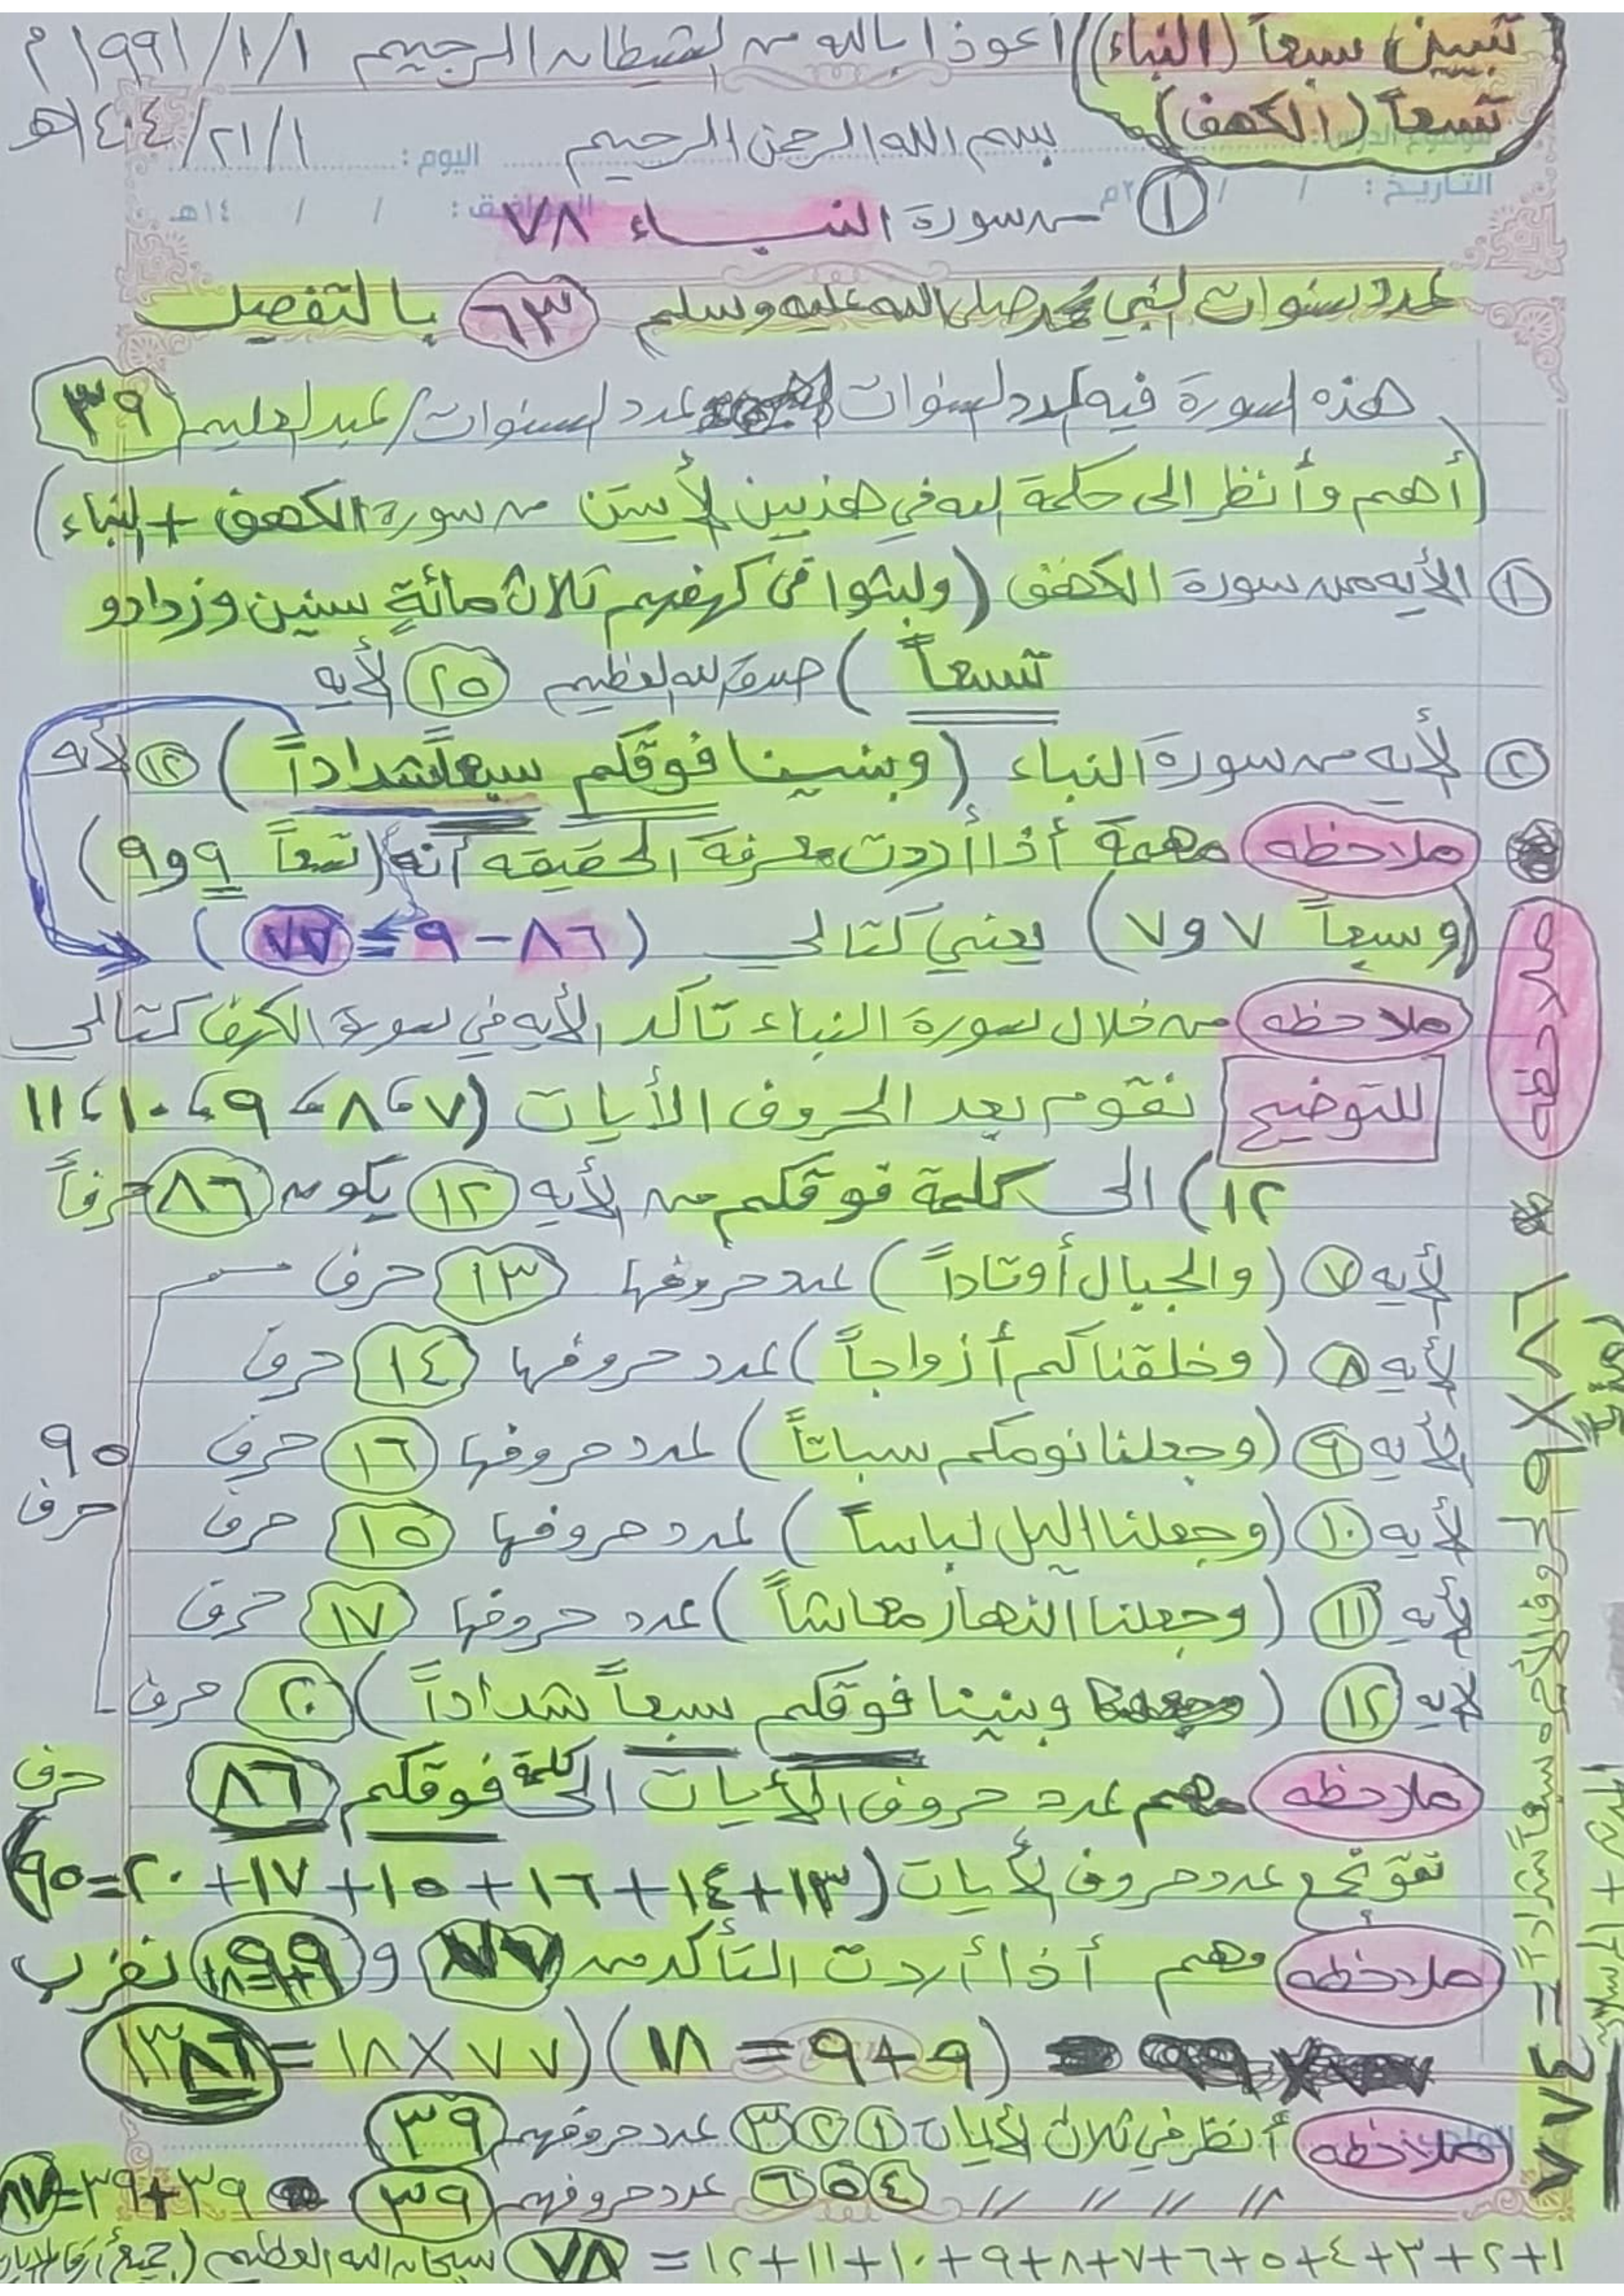 تسعين سبعاً (النباء)
تسعاً (الكهف)
أعوذ بالله من الشيطان الرجيم ١/١/١٩٩١م
بسم الله الرحمن الرحيم
اليوم :
١/٢١/١٤٠٤هـ
موضوع الدرس :
التاريخ : / / ٢٠م
الموافق : / / ١٤هـ
① من سورة النباء ٧٨
عدد سنوات النبي محمد صلى الله عليه وسلم ٦٣ بالتفصيل
هذه السورة فيه عدد السنوات عدد السنوات/عبد العليم ٣٩
(أهم وأنظر الى حكمة الله في هذين الأيتين من سورة الكهف + النباء)
① الأيه من سورة الكهف (ولبثوا في كهفهم ثلاث مائةٍ سنين وزدادو
تسعاً) صدق الله العظيم ٢٥ لأيه
② لأيه من سورة النباء (وبنينا فوقكم سبعاً شداداً) ١٢ لأيه
ملاحظه مهمة أذا أردت معرفة الحقيقه أنه (تسعاً ٩و٩)
(وسبعاً ٧و٧) يعني كتالي (٨٦-٩=٧٧)
ملاحظه من خلال سورة النباء تاكد الأيه في سورة الكهف كتالي
للتوضيح نقوم بعد الحروف الأيات (٧،٨،٩،١٠،١١
١٢) الى كلمة فوقكم من الأيه ١٢ يكون ٨٦ حرفاً
لأيه ٧ (والجبال أوتاداً) عدد حروفها ١٣ حرف
لأيه ٨ (وخلقناكم أزواجاً) عدد حروفها ١٤ حرف
لأيه ٩ (وجعلنا نومكم سباتاً) عدد حروفها ١٦ حرف
٩٥
حرف
لأيه ١٠ (وجعلنا اليل لباساً) عدد حروفها ١٥ حرف
لأيه ١١ (وجعلنا النهار معاشاً) عدد حروفها ١٧ حرف
لأيه ١٢ (وبنينا فوقكم سبعاً شداداً) ٢٠ حرف
ملاحظه مهم عدد حروف الأيات الى كلمة فوقكم ٨٦ حرف
نقو نجمع عدد حروف الأيات (١٣+١٤+١٦+١٥+١٧+٢٠=٩٥)
ملاحظه وهم أذا أردت التأكد من ٧٧ و ٩٩ نضرب
(٩+٩=١٨) (٧٧×١٨=١٣٨٦
ملاحظه أنظر في ثلاث الأيات ① ② ③ عدد حروفهم ٣٩
// // // // ④ ⑤ ⑥ عدد حروفهم ٣٩ ٣٩+٣٩=٧٨
١+٢+٣+٤+٥+٦+٧+٨+٩+١٠+١١+١٢=٧٨ سبحان الله العظيم (جميع أرقام الأيات
٨٦×٩
سبعاً شداداً = ٧٧٤